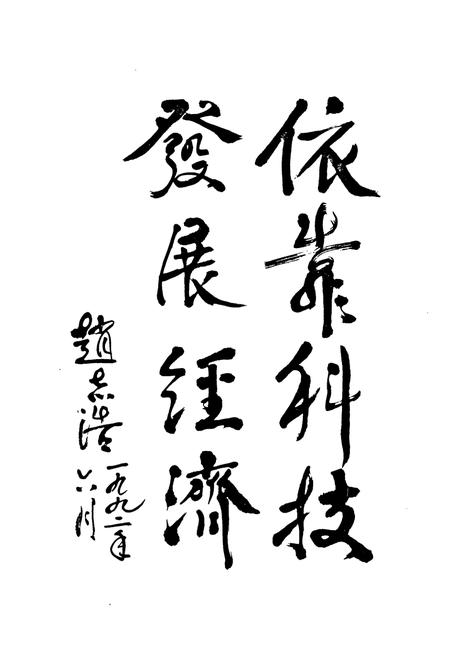 依靠科技
發展經濟
趙志浩
一九九二年
六月